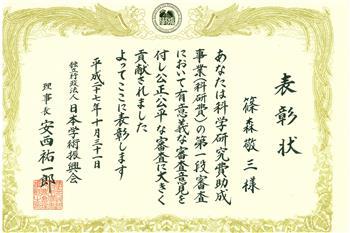 表彰状
篠森敬三様
あなたは科学研究費助成
事業(科研費)の第一段審査
において有意義な審査意見を
付し公正・公平な審査に大きく
貢献されました
よってここに表彰します
平成二十七年十月三十一日
独立行政法人日本学術振興会
理事長 安西祐一郎